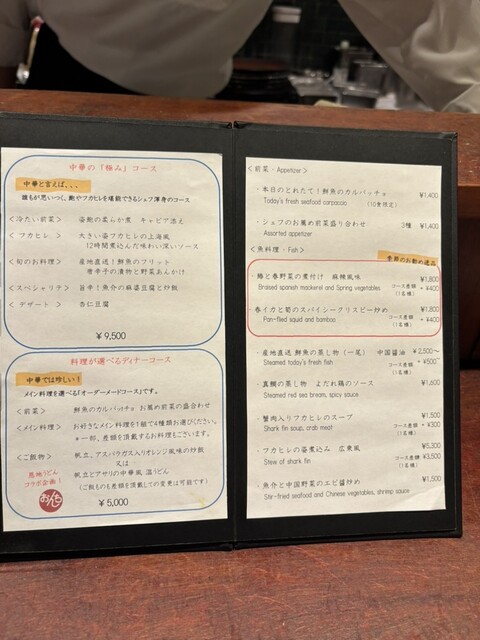 中華の「極み」コース
中華と言えば、、、
誰もが思いつく、鮑やフカヒレを堪能できるシェフ渾身のコース
<冷たい前菜> 姿鮑の柔らか煮 キャビア添え
<フカヒレ> 大きい姿フカヒレの上海風
12時間煮込んだ味わい深いソース
<旬のお料理> 産地直送!鮮魚のフリット
唐辛子の漬物と野菜あんかけ
<スペシャリテ> 旨辛!魚介の麻婆豆腐と炒飯
<デザート> 杏仁豆腐
¥9,500
料理が選べるディナーコース
中華では珍しい!
メイン料理を選べる「オーダーメードコース」です。
<前菜> 鮮魚のカルパッチョ お薦め前菜の盛合わせ
<メイン料理> お好きなメイン料理を1組で4種類お選びください。
*一部、差額を頂戴するお料理もございます。
<ご飯物> 帆立、アスパラガス入りオレンジ風味の炒飯
又は
帆立とアサリの中華風 温うどん
(ご飯ものも差額を頂戴しての変更は可能です)
恩地うどん
コラボ企画!
おんち
¥5,000
<前菜・Appetizer>
・本日のとれたて!鮮魚のカルパッチョ ¥1,400
Today's fresh seafood carpaccio (10食限定)
・シェフのお薦め前菜盛り合わせ 3種 ¥1,400
Assorted appetizer
<魚料理・Fish>
季節のお勧め逸品
・鰆と春野菜の煮付け 麻辣風味 ¥1,800
Braised spanish mackerel and Spring vegetables コース差額 +¥400
(1名様)
・春イカと筍のスパイシークリスピー炒め ¥1,800
Pan-fried squid and bamboo コース差額 +¥400
(1名様)
・産地直送 鮮魚の蒸し物 (一尾) 中国醤油 ¥2,500~
Steamed today's fresh fish コース差額 +¥500~
(1名様)
・真鯛の蒸し物 よだれ鶏のソース ¥1,600
Steamed red sea bream, spicy sauce
・蟹肉入りフカヒレのスープ ¥1,500
Shark fin soup, crab meat コース差額 ¥300
(1名様)
・フカヒレの姿煮込み 広東風 ¥5,300
Stew of shark fin コース差額 ¥3,500
(1名様)
・魚介と中国野菜のエビ醤炒め ¥1,500
Stir-fried seafood and Chinese vegetables, shrimp sauce